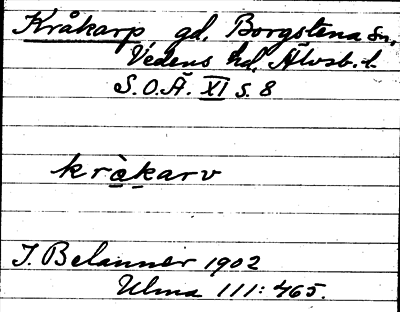 Kråkarp, gd. Borgstena sn,
Vedens hd, Älvsb. l.
S.O.Ä. XI s. 8
kràkarv
J. Belanner 1902
Ulma 111:465.